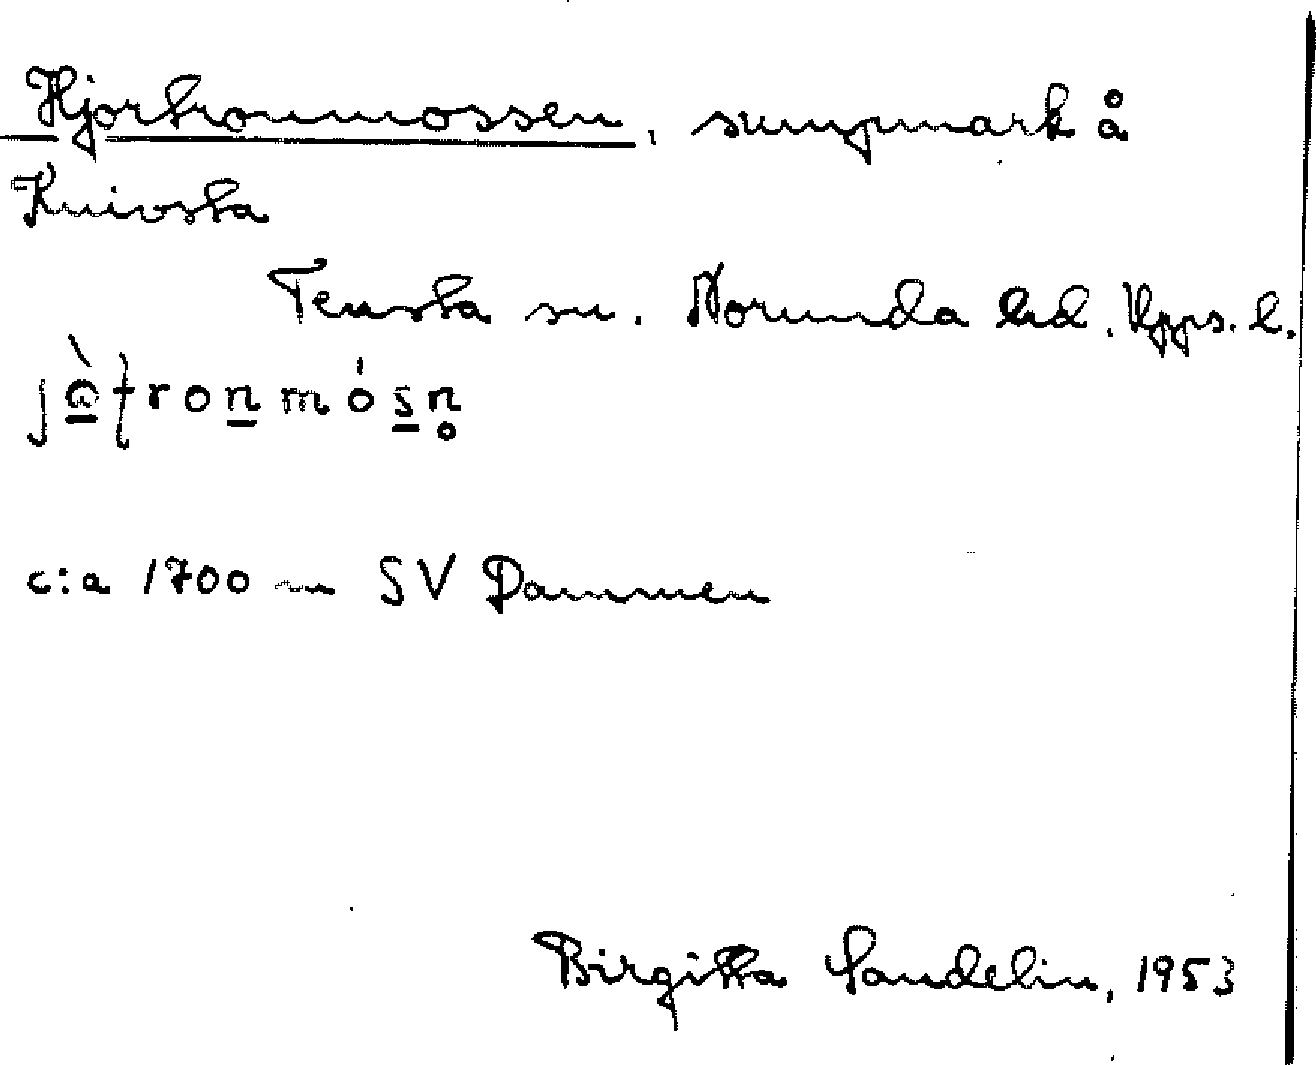 Hjortronmossen, sumpmark å
Knivsta
Tensta sn. Norunda hd. Upps. l.
c:a 1700 m SV Dammen
Birgitta Sandelin, 1953